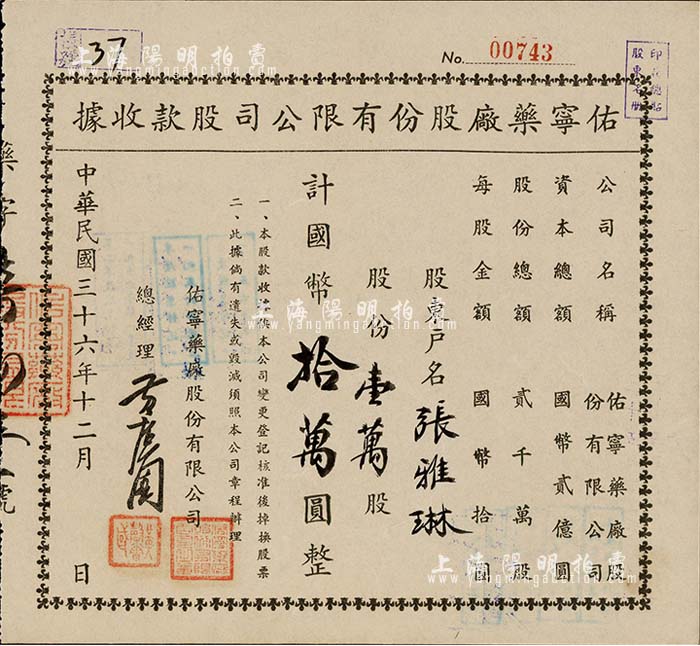 37
No. 00743
佑寧藥廠股份有限公司股款收據
公司名稱 佑寧藥廠股份有限公司
資本總額 國幣貳億圓
股份總額 貳千萬股
每股金額 國幣拾圓
股東戶名 張雅琳
股份壹萬股
計國幣拾萬圓整
一、本股款收據俟本公司變更登記核准後掉換股票
二、此據倘有遺失或毀滅須照本公司章程辦理
佑寧藥廠股份有限公司
總經理
中華民國三十六年十二月 日
藥字
號
上海陽明拍賣
上海陽明拍賣
www.yangmingauction.com
上海陽明拍賣